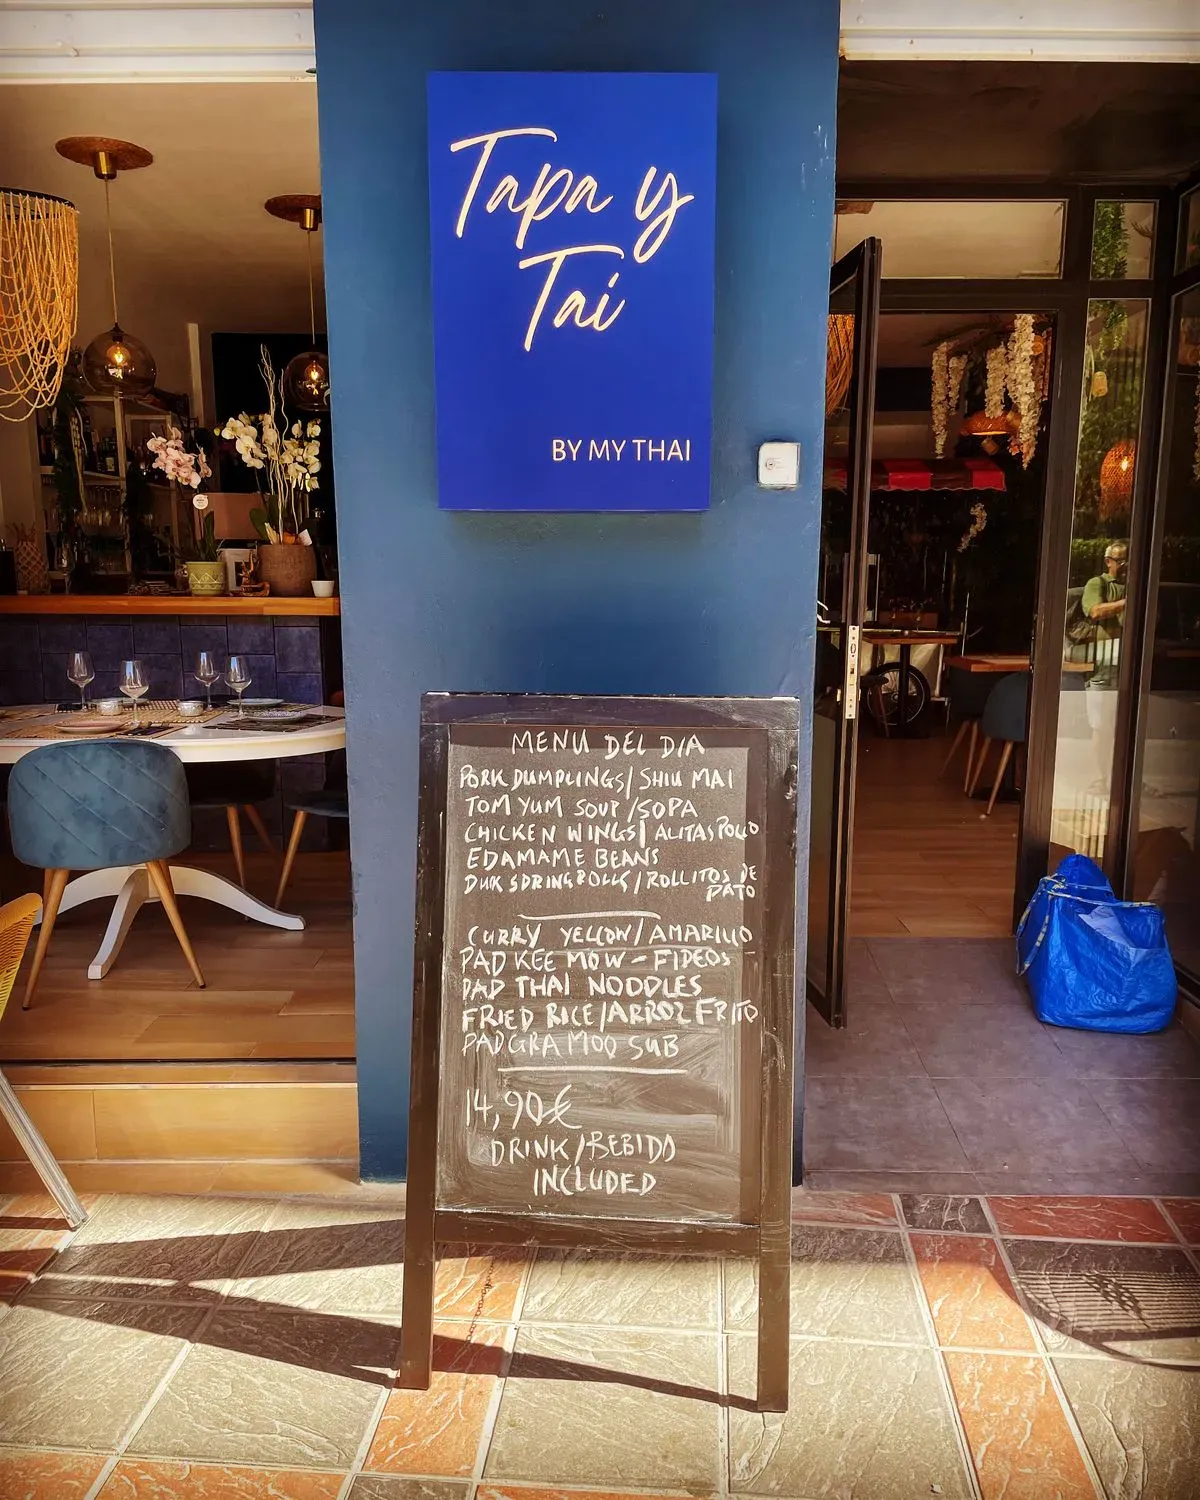 Tapa y
Tai
BY MY THAI
MENU DEL DIA
PORK DUMPLINGS/ SHIU MAI
TOM YUM SOUP /SOPA
CHICKEN WINGS/ ALITAS POLLO
EDAMAME BEANS
DUK SPRING ROLLS/ROLLITOS DE
PATO
CURRY YELLOW/AMARILLO
PAD KEE MOW - FIDEOS
PAD THAI NOODLES
FRIED RICE/ARROZ FRITO
PAD GRA MOO SUB
14,90€
DRINK/BEBIDO
INCLUDED